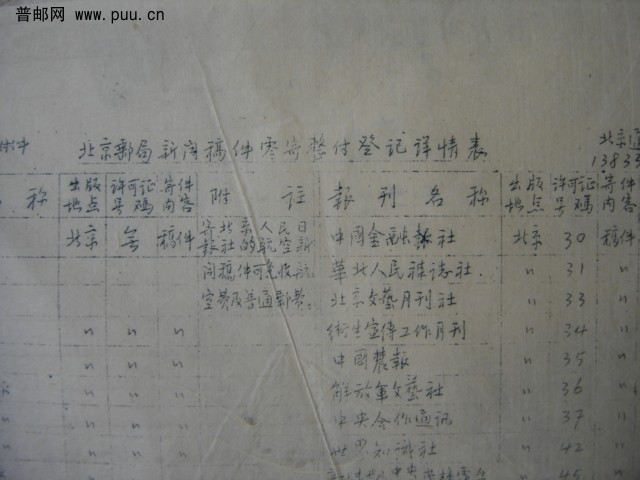 普邮网 www.puu.cn
附件
北京邮局新闻稿件零寄整付登记详情表
北京通
13833
称 出版地点 许可证号码 寄件内容 附註 報刊名称 出版地点 许可证号码 寄件内容
北京 无 稿件 寄北京人民日报社的航空新闻稿件可免收航空费及普通邮费。 中國金融報社 北京 30 稿件
華北人民雜誌社. 〃 31 〃
北京文藝月刊社 〃 33 〃
〃 〃 〃 衛生宣傳工作月刊 〃 34 〃
〃 〃 〃 中國農報 〃 35 〃
〃 〃 〃 解放軍文藝社 〃 36 〃
〃 〃 〃 中央合作通訊 〃 37 〃
〃 〃 〃 世界知識社 〃 42 〃
〃 〃 〃 中央 〃 45 〃